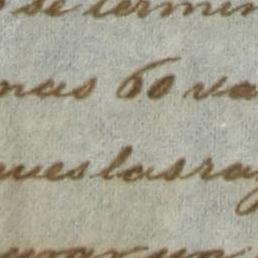 se termin
mas 60 va
ques las ra